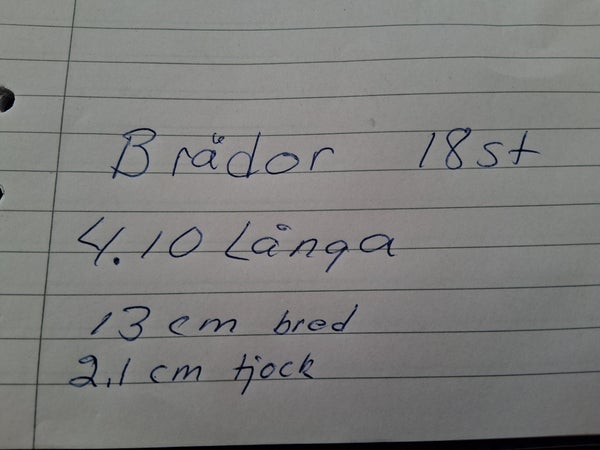 Brädor 18st
4.10 Långa
13 cm bred
2,1 cm tjock